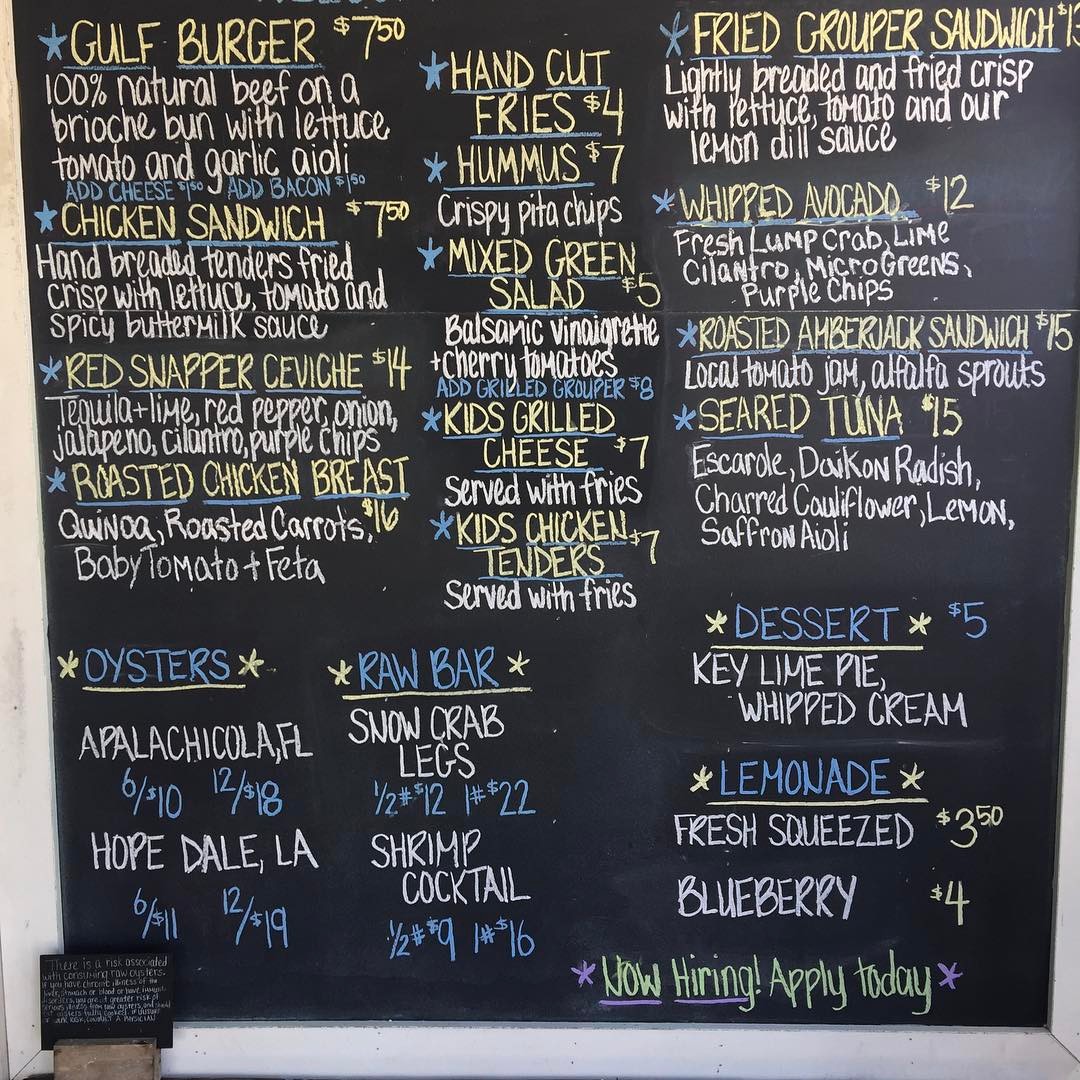 *GULF BURGER $7.50
100% natural beef on a
brioche bun with lettuce
tomato and garlic aioli
ADD CHEESE $1.50 ADD BACON $1.50
*CHICKEN SANDWICH $7.50
Hand breaded tenders fried
crisp with lettuce, tomato and
spicy buttermilk sauce
*RED SNAPPER CEVICHE $14
Tequila+lime, red pepper, onion,
jalapeno, cilantro, purple chips
*ROASTED CHICKEN BREAST
Quinoa, Roasted Carrots, $16
Baby Tomato + Feta
*HAND CUT
FRIES $4
*HUMMUS $7
Crispy pita chips
*MIXED GREEN
SALAD $5
Balsamic vinaigrette
+cherry tomatoes
ADD GRILLED GROUPER $8
*KIDS GRILLED
CHEESE $7
Served with fries
*KIDS CHICKEN $7
TENDERS
Served with fries
*FRIED GROUPER SANDWICH
Lightly breaded and fried crisp
with lettuce, tomato and our
lemon dill sauce
*WHIPPED AVOCADO $12
Fresh Lump Crab, Lime
Cilantro, MicroGreens,
Purple Chips
*ROASTED AMBERJACK SANDWICH $15
Local tomato jam, alfalfa sprouts
*SEARED TUNA $15
Escarole, Daikon Radish,
Charred Cauliflower, Lemon,
Saffron Aioli
*OYSTERS*
APALACHICOLA, FL
6/$10 12/$18
HOPE DALE, LA
6/$11 12/$19
*RAW BAR*
SNOW CRAB
LEGS
1/2# $12 1# $22
SHRIMP
COCKTAIL
1/2# $9 1# $16
*DESSERT* $5
KEY LIME PIE,
WHIPPED CREAM
*LEMONADE*
FRESH SQUEEZED $3.50
BLUEBERRY $4
*Now Hiring! Apply today*
There is a risk associated
with consuming raw oysters.
If you have chronic illness of the
liver, stomach or blood or have
disorders, you are at greater risk of
serious illness from raw oysters, and should
eat oysters fully cooked. If
of your risk, consult a physician